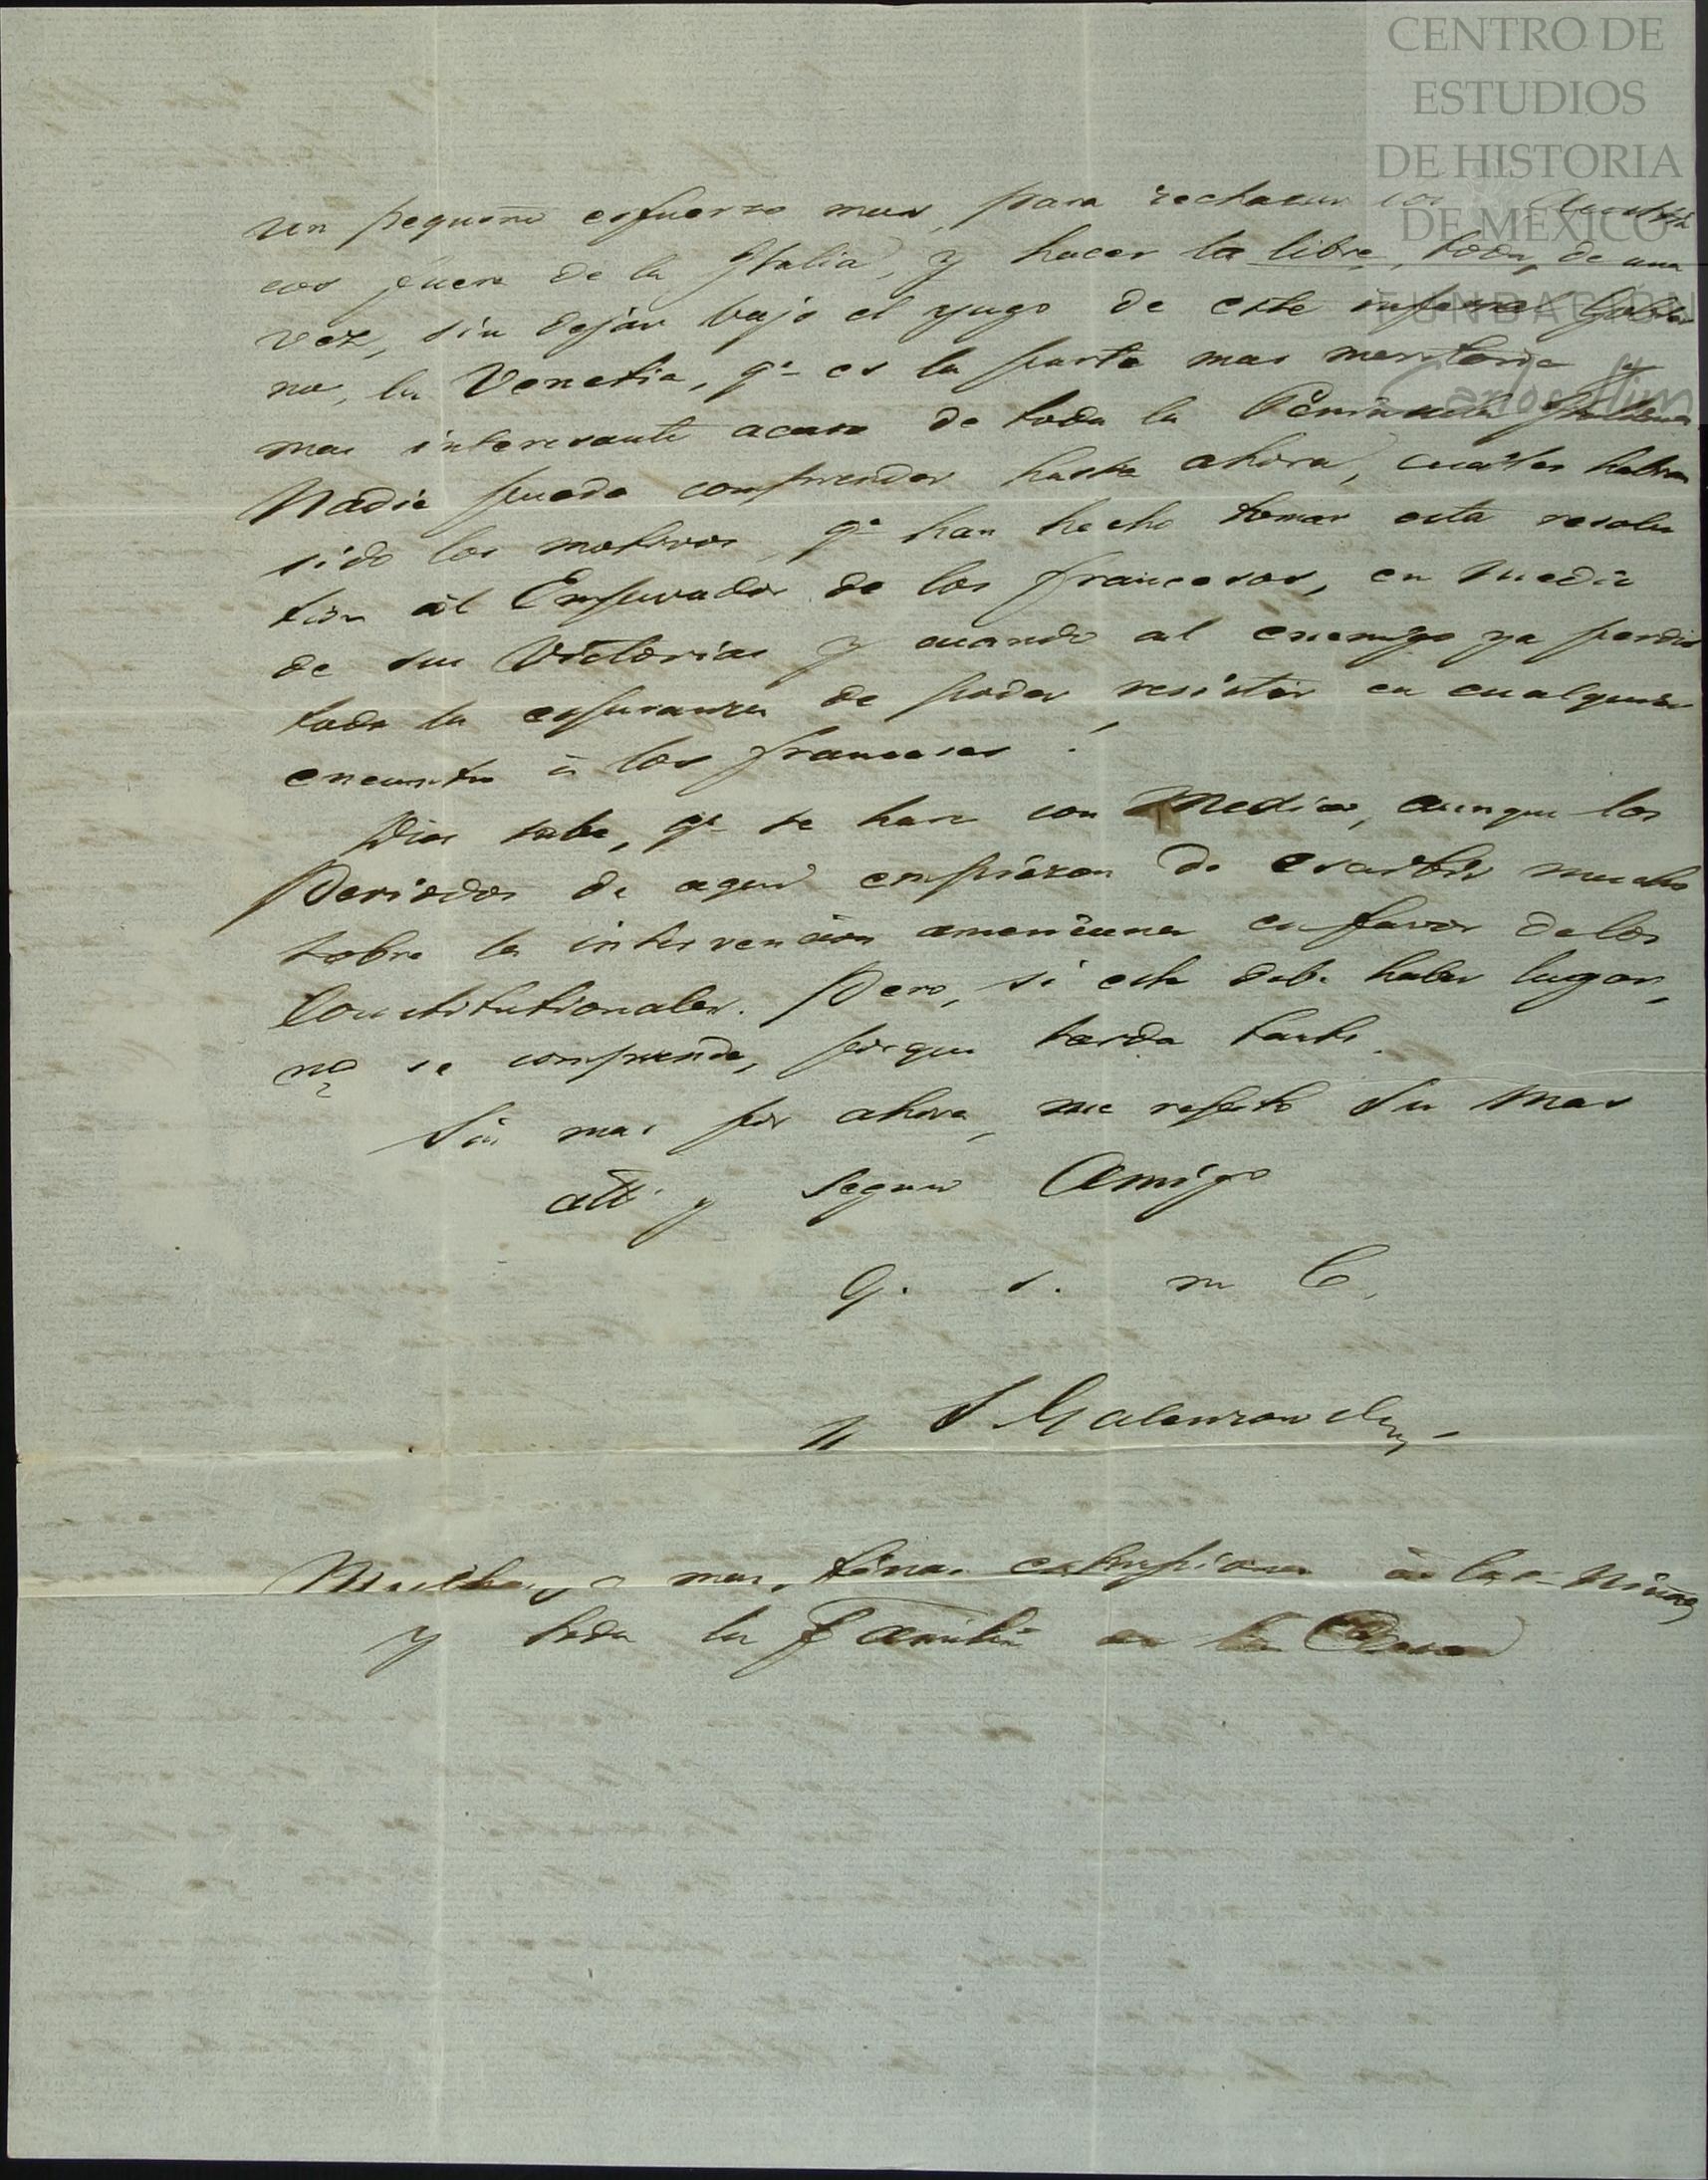 CENTRO DE
ESTUDIOS
DE HISTORIA
DE MÉXICO
FUNDACIÓN
Carlos Slim
un pequeño esfuerzo mas, para rechazar los Austria
cos fuera de la Italia, y hacer la libre, toda, de una
vez, sin dejar bajo el yugo de este infernal Gobier
no, la Venetia, qe es la parte mas meritoria y
mas interesante acaso de toda la Peninsula Italiana.
Nadie puede comprender hasta ahora, cuales habran
sido los motivos, qe han hecho tomar esta resolu
tion al Emperador de los franceses, en medio
de sus Victorias y cuando el enemigo ya perdió
toda la esperanza de poder resistir en cualquier
encuentro á los franceses.
Dios sabe, qe se hara con Mexico, aunque los
Periodos de aqui empiezan de escribir mucho
sobre la intervencion americana en favor de los
Constitutionales. Pero, si esta debe haber lugar,
no se comprende, porque tarda tanto.
Sin mas por ahora, me repito Su mas
att. y seguro Amigo
q. s. m. B.
S
Muchas mas finas expresiones á las Niñas
y toda la Familia en la Casa